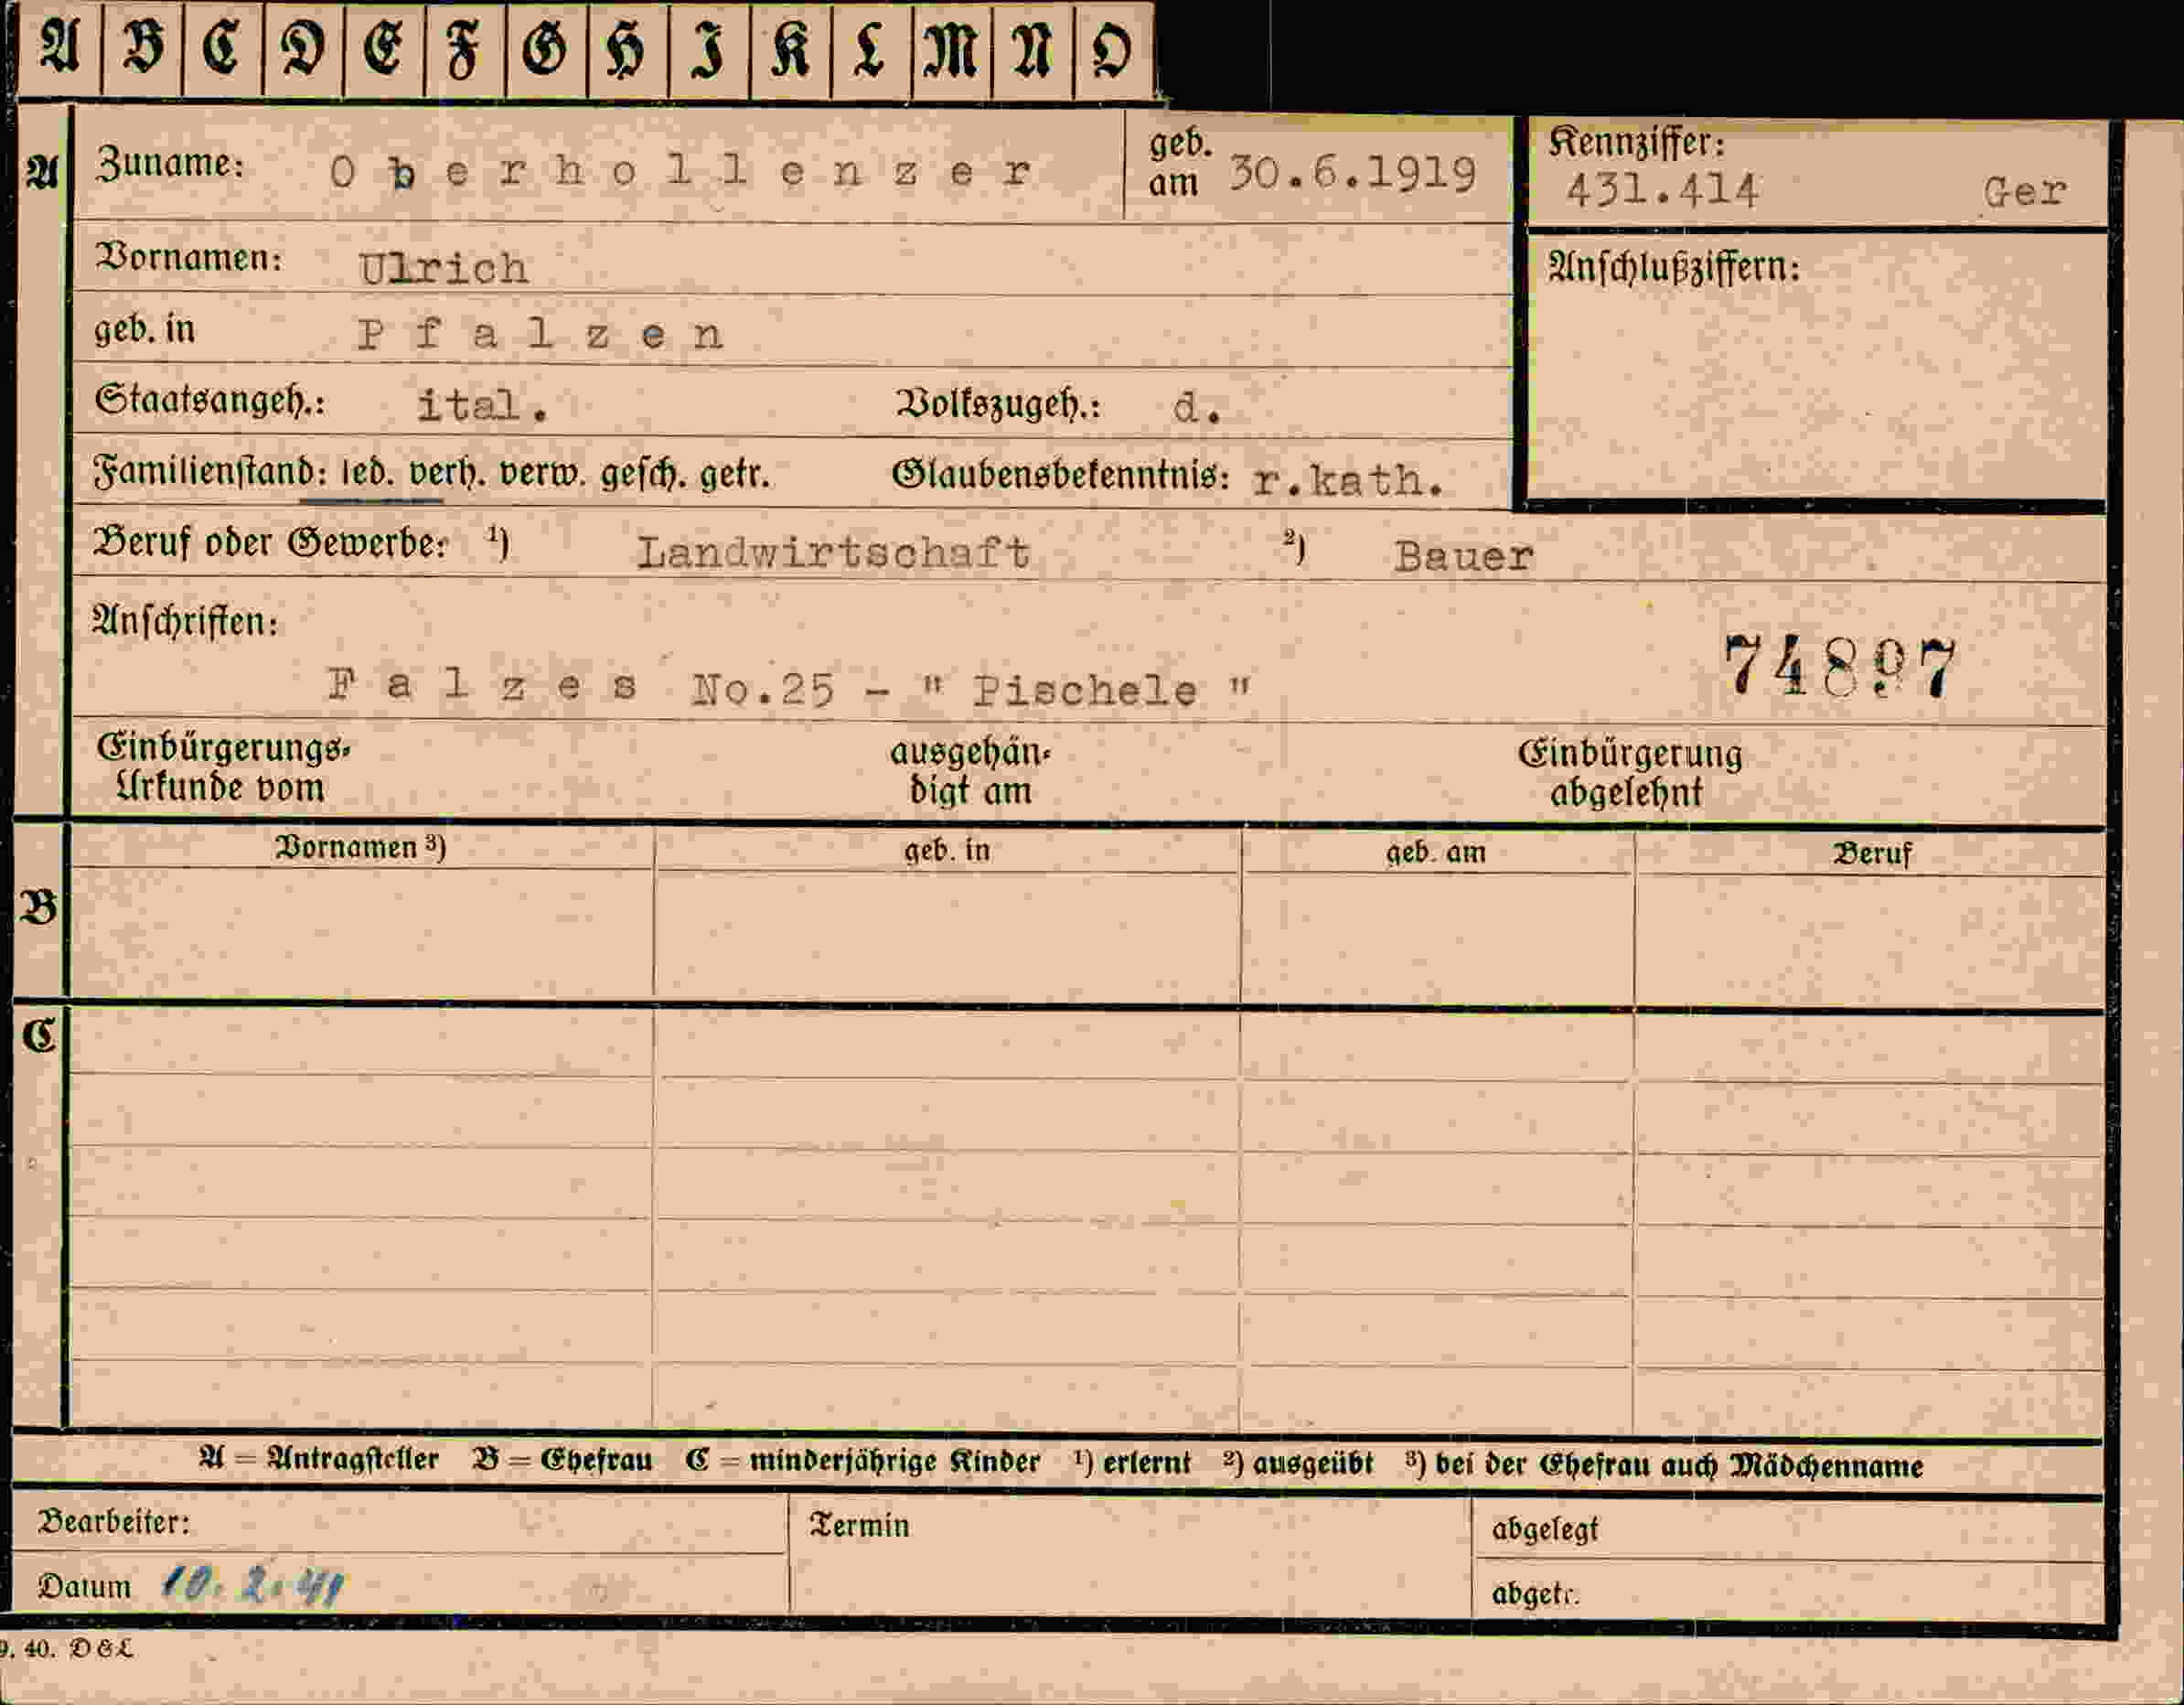 A B C D E F G H I K L M N O
A Zuname: Oberhollenzer geb. am 30.6.1919 Kennziffer: 431.414 Ger
Vornamen: Ulrich Anschlußziffern:
geb. in Pfalzen
Staatsangeh.: ital. Volkszugeh.: d.
Familienstand: led. verh. verw. gesch. getr. Glaubensbekenntnis: r.kath.
Beruf oder Gewerbe: 1) Landwirtschaft 2) Bauer
Anschriften:
Falzes No.25 - " Pischele " 74897
Einbürgerungs- ausgehän- Einbürgerung
Urkunde vom digt am abgelehnt
Vornamen 3) geb. in geb. am Beruf
B
C
A = Antragsteller B = Ehefrau C = minderjährige Kinder 1) erlernt 2) ausgeübt 3) bei der Ehefrau auch Mädchenname
Bearbeiter: Termin abgelegt
Datum 10.2.41 abgetr.
9. 40. DGL